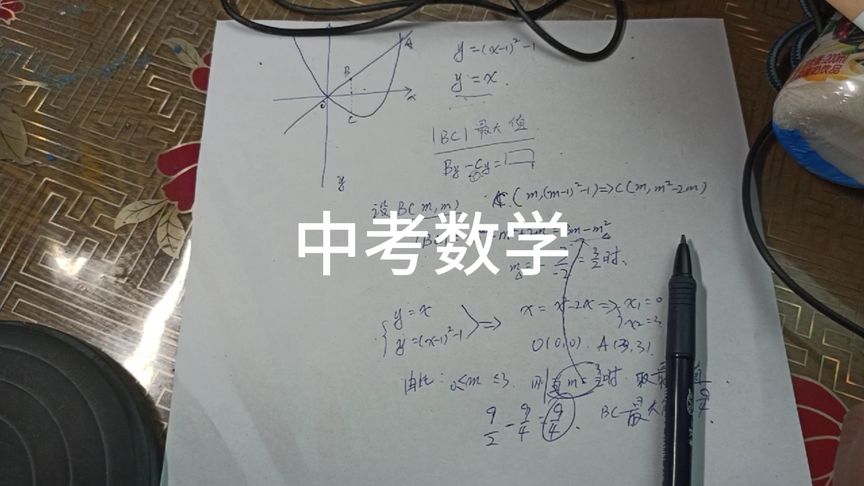 A
B
O
C
x
y
y=(x-1)²-1
y=x.
|BC|最大值
By-Cy=
设B(m,m) C(m,(m-1)²-1)=>C(m,m²-2m)
=3m-m²
中考数学
=3/2时、
{y=x
y=(x-1)²-1 => x=x²-2x => x₁=0
x₂=3
O(0,0). A(3,3).
由此: 0≤m≤3. 则当m=3/2时. 取最 值
9/2-9/4=9/4. BC最大 9/4.